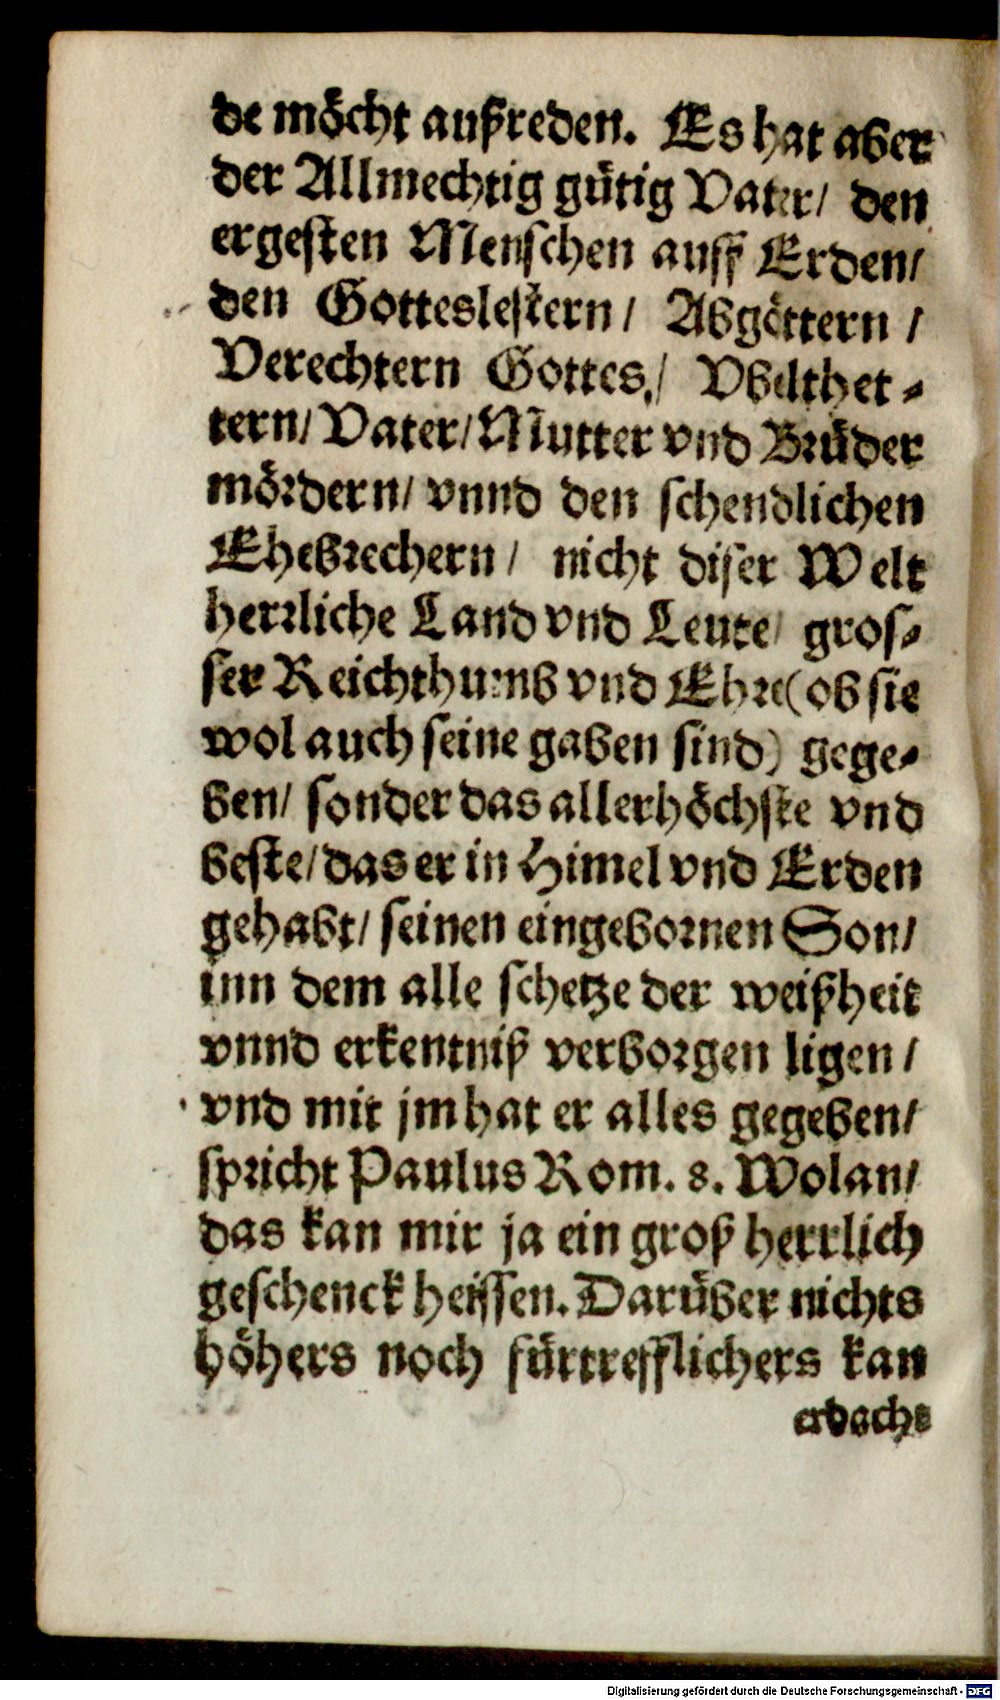 de möcht außreden. Es hat aber
der Allmechtig gütig Vater/ den
ergesten Menschen auff Erden/
den Gotteslestern/ Abgöttern/
Verechtern Gottes,/ Vbelthet-
tern/ Vater/ Mutter vnd Brüder
mördern/ vnnd den schendlichen
Ehebrechern/ nicht diser Welt
herrliche Land vnd Leute/ gros-
ser Reichthumb vnd Ehre(ob sie
wol auch seine gaben sind) gege-
ben/ sonder das allerhöchste vnd
beste/ das er in Himel vnd Erden
gehabt/ seinen eingebornen Son/
inn dem alle schetze der weißheit
vnnd erkentniß verborgen ligen/
vnd mit jm hat er alles gegeben/
spricht Paulus Rom. 8. Wolan/
das kan mir ja ein groß herrlich
geschenck heissen. Darüber nichts
höhers noch fürtrefflichers kan
erdacht
Digitalisierung gefördert durch die Deutsche Forschungsgemeinschaft - DFG